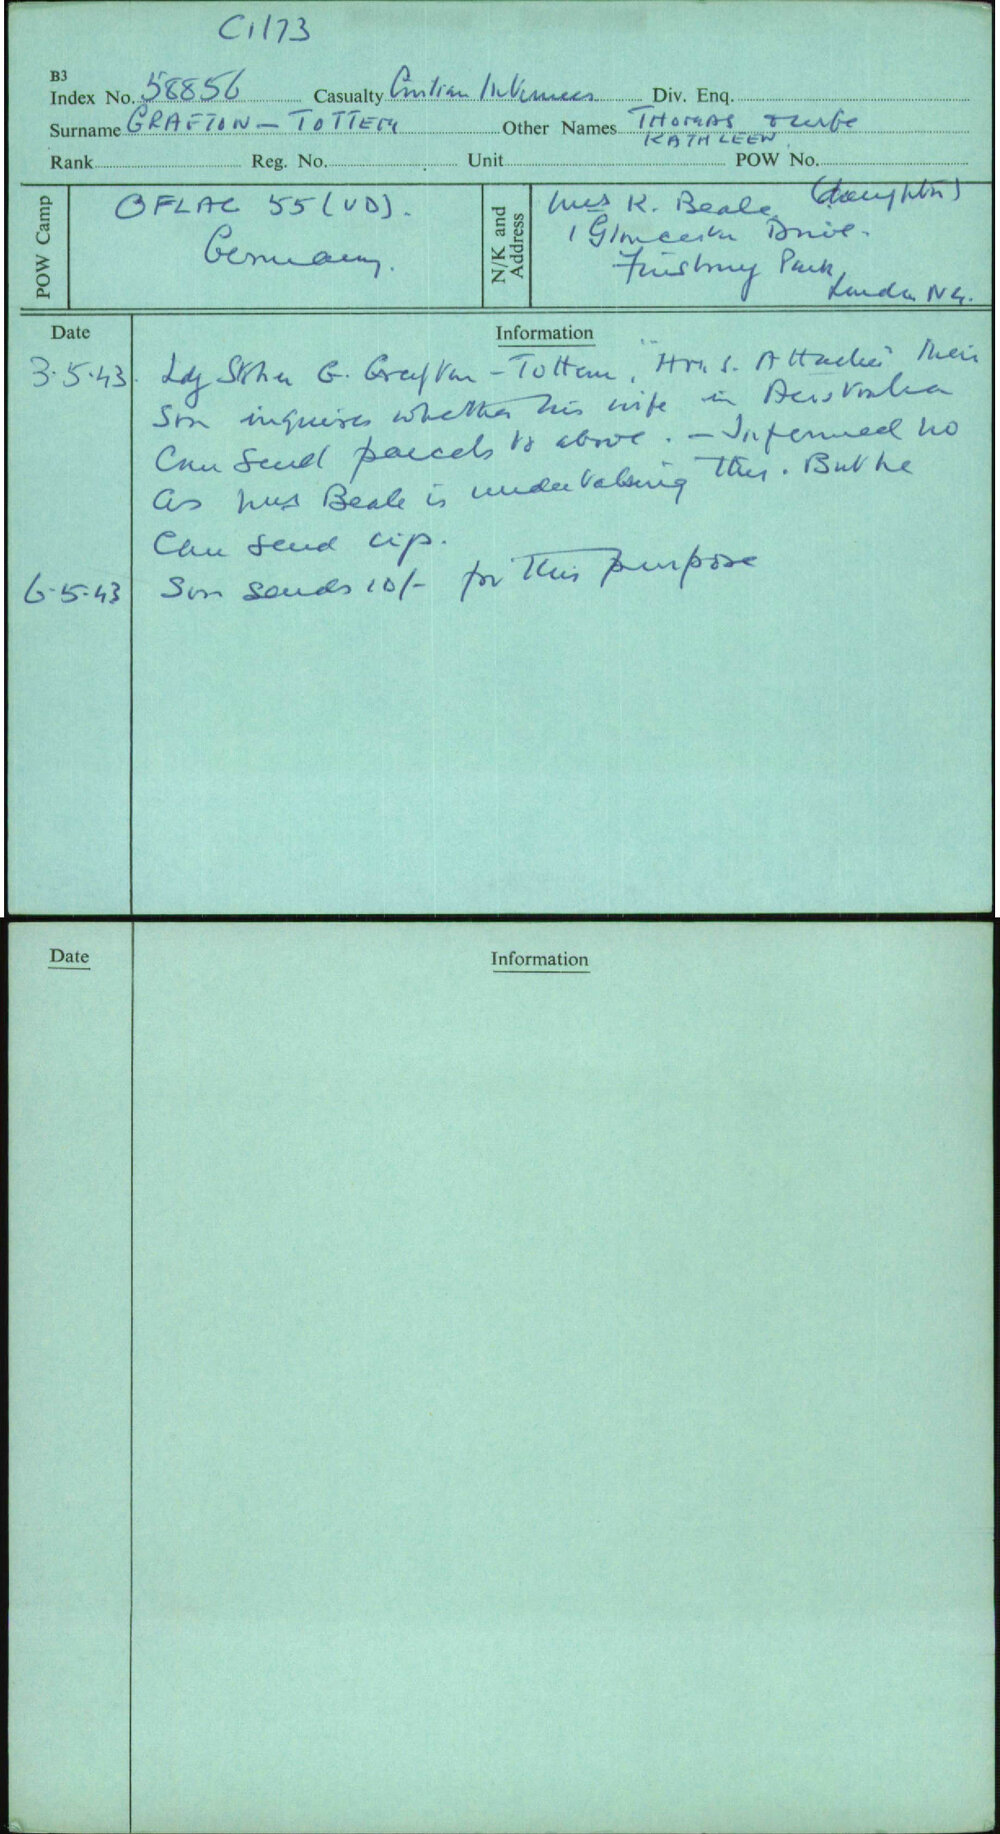 C1/73
B3
Index No. 58856 Casualty Civilian Internees Div. Enq.
Surname GRAFTON - TOTTEM Other Names THOMAS & wife
KATHLEEN
Rank Reg. No. Unit POW No.
POW Camp
OFLAG 55 (VD).
Germany.
N/K and Address
Mrs K. Beale (daughter)
1 Gloucester Drive.
Finsbury Park,
London N4.
Date Information
3.5.43. Ldg Stoker G. Grafton - Tottem, "H.M.S. Attacker" their
Son inquires whether his wife in Australia
Can send parcels to above. - Informed no
as Mrs Beale is undertaking this. But he
Can send cigs.
6.5.43 Son sends 10/- for this purpose
Date Information